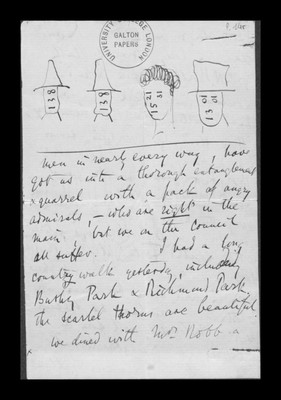 UNIVERSITY COLLEGE LONDON
GALTON
PAPERS
138
138
15 21
31
1301
01
men in nearly every way, have
got us into a thorough entanglement
& quarrel with a pack of angry
admirals, – who are right in the
main, but we on the Council
all suffer. I had a long
country walk yesterday, including
Bushy Park & Richmond Park,
the scarlet thorns are beautiful.
we dined with Mrs Robb